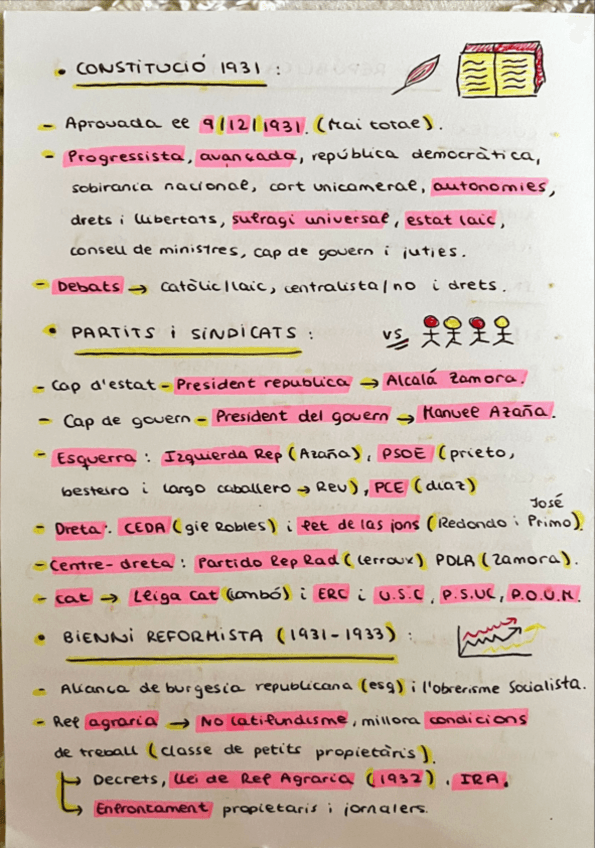 • CONSTITUCIÓ 1931 :
- Aprovada el 9/12/1931. (Mai total).
- Progressista, avançada, república democràtica,
sobirania nacional, cort unicameral, autonomies,
drets i llibertats, sufragi universal, estat laic,
consell de ministres, cap de govern i juties.
- Debats → catòlic/laic, centralista/no i drets.
• PARTITS i SINDICATS :
vs
- Cap d'estat - President republica → Alcalá Zamora.
- Cap de govern - President del govern → Manuel Azaña.
- Esquerra : Izquierda Rep (Azaña), PSOE (prieto,
besteiro i largo caballero → Rev), PCE (diaz)
- Dreta : CEDA (gil Robles) i fet de las jons (Redondo i José Primo).
- Centre-dreta : Partido Rep Rad (lerroux) PDLR (Zamora).
- cat → Lliga Cat (cambó) i ERC i U.S.C, P.S.U.C, P.O.U.M.
• BIENNI REFORMISTA (1931-1933) :
- Aliança de burgesia republicana (esq) i l'obrerisme Socialista.
- Ref agraria → No latifundisme, millora condicions
de treball (classe de petits propietàris).
↳ Decrets, llei de Ref Agraria (1932). IRA.
↳ Enfrontament propietaris i jornalers.